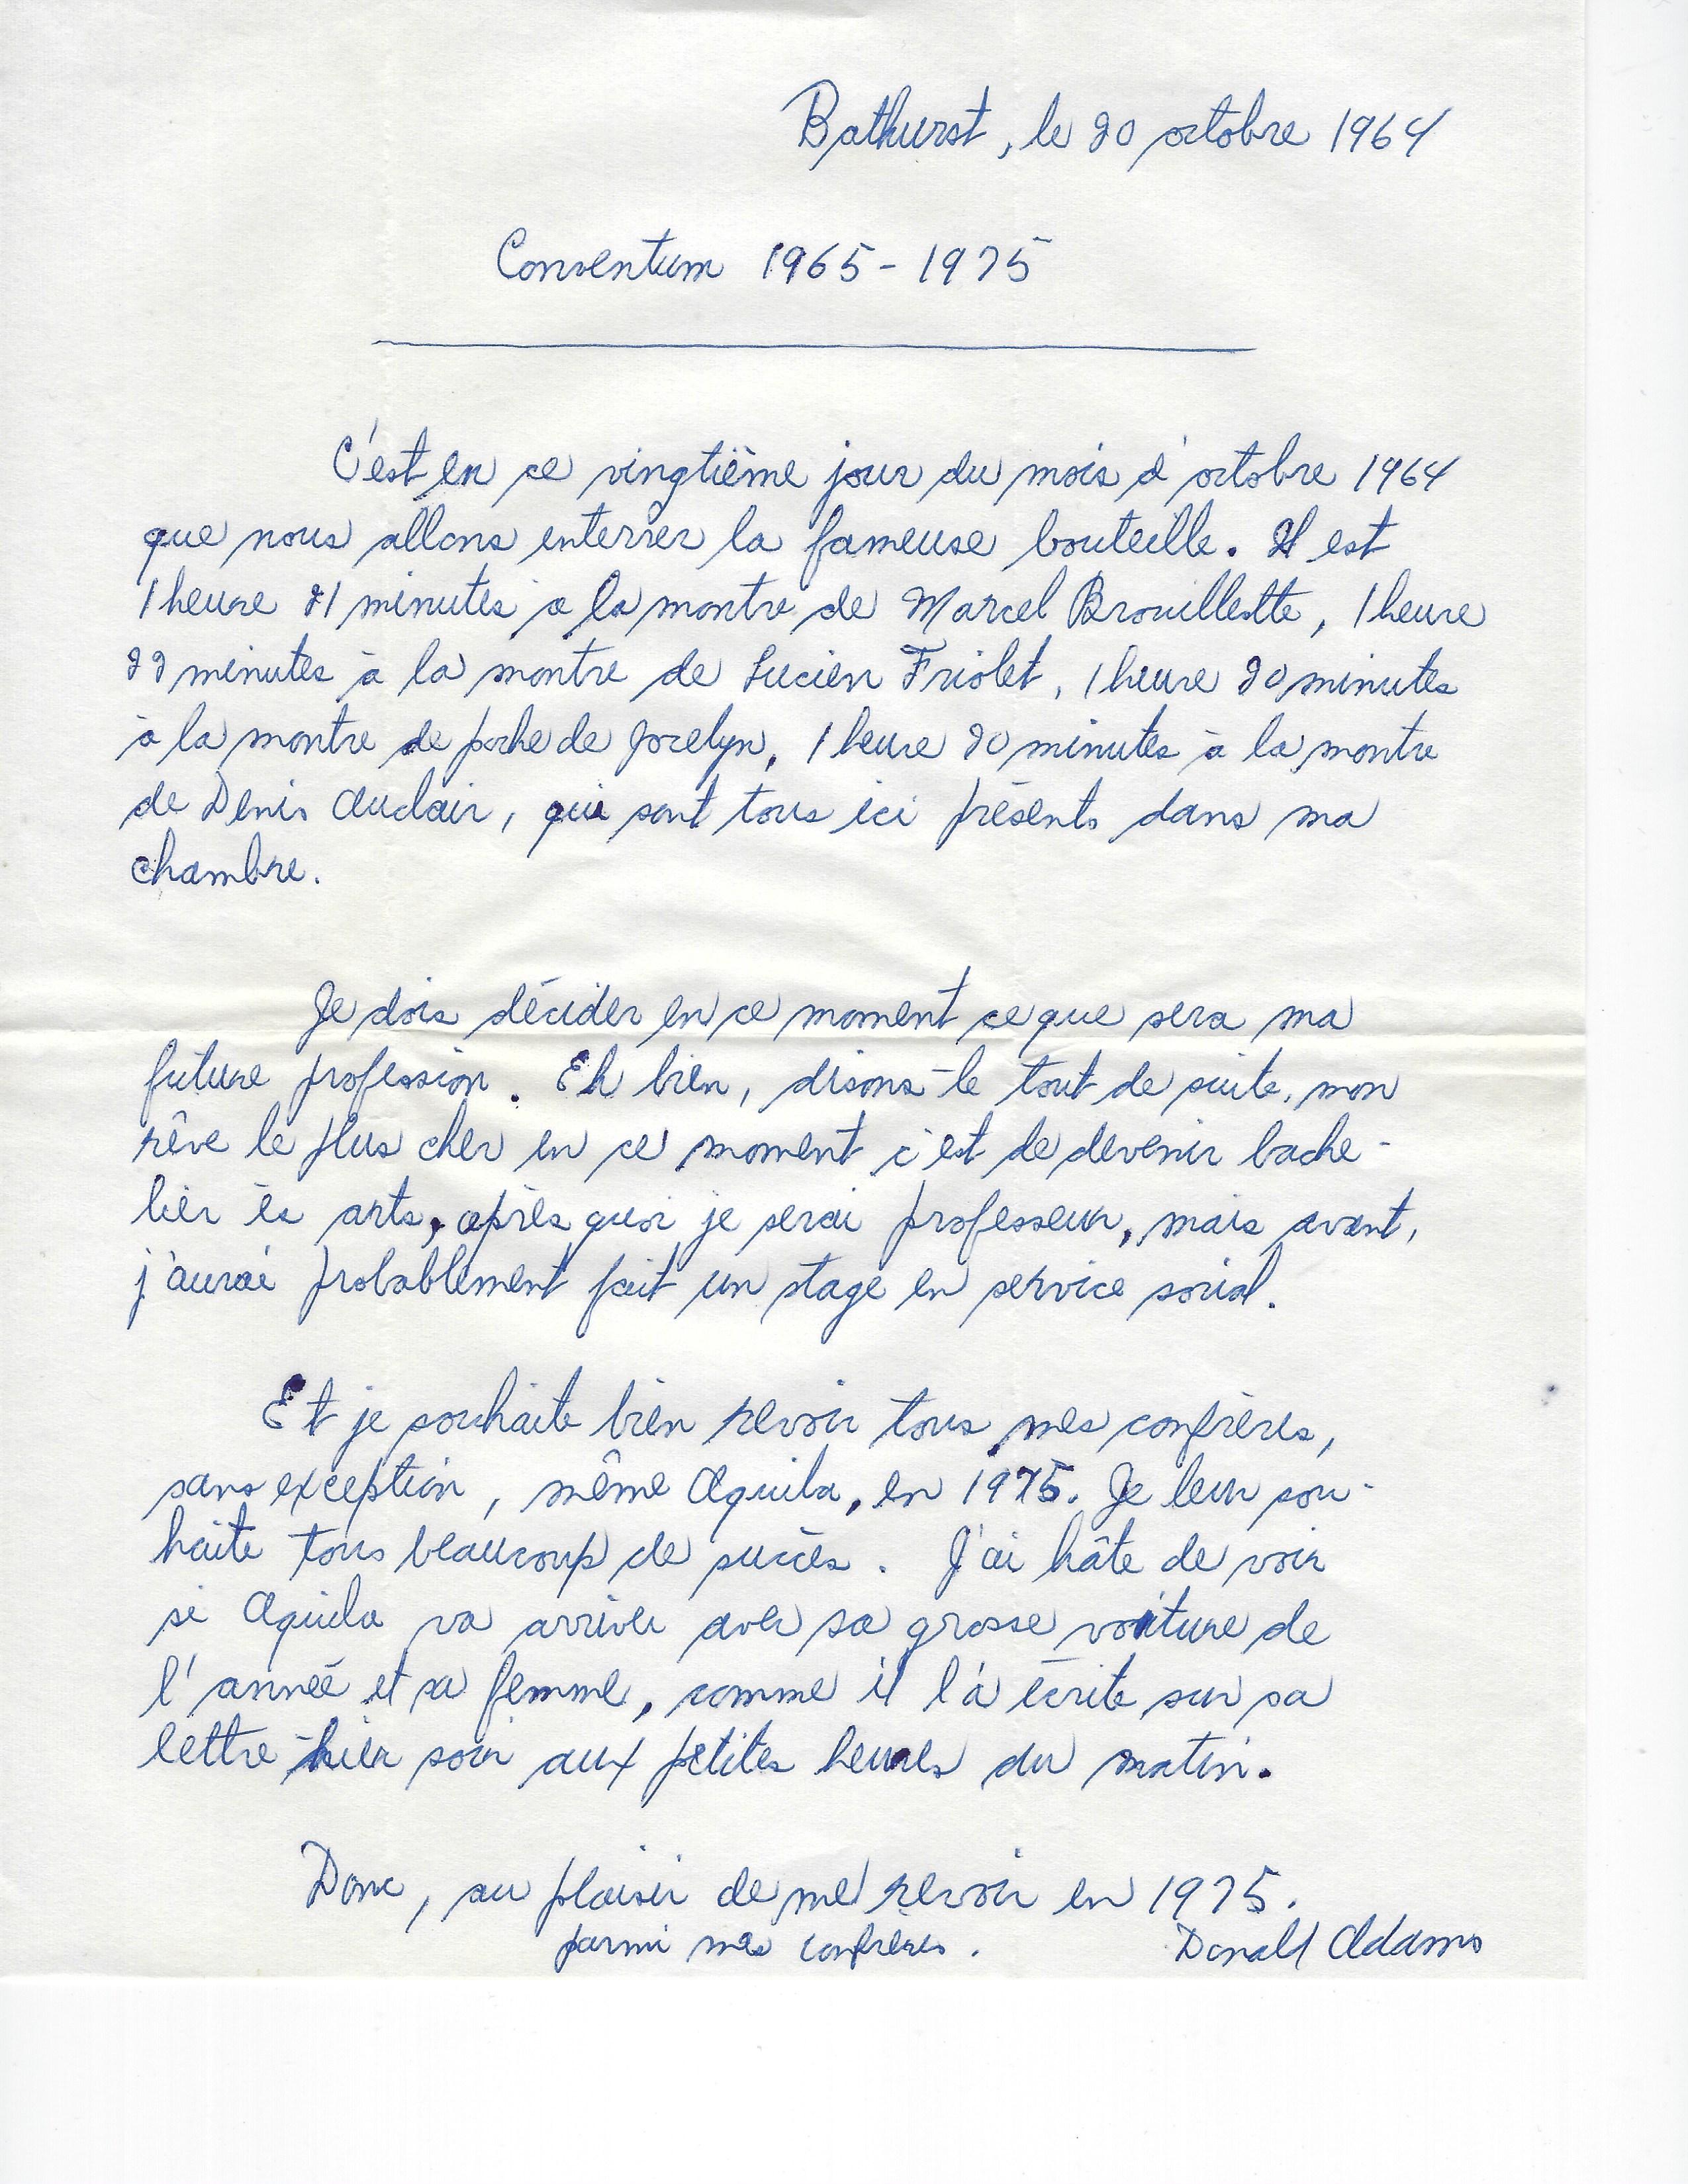 Bathurst, le 20 octobre 1964
Conventum 1965-1975
C'est en ce vingtième jour du mois d'octobre 1964
que nous allons enterrer la fameuse bouteille. Il est
1 heure 21 minutes à la montre de Marcel Brouillette, 1 heure
22 minutes à la montre de Lucien Friolet, 1 heure 20 minutes
à la montre de poche de Jocelyn, 1 heure 20 minutes à la montre
de Denis Auclair, qui sont tous ici présents dans ma
chambre.
Je dois décider en ce moment ce que sera ma
future profession. Eh bien, disons-le tout de suite, mon
rêve le plus cher en ce moment c'est de devenir bache-
lier ès arts, après quoi je serai professeur, mais avant,
j'aurai probablement fait un stage en service social.
Et je souhaite bien revoir tous mes confrères,
sans exception, même Aquila, en 1975. Je leur sou-
haite tous beaucoup de succès. J'ai hâte de voir
si Aquila va arriver avec sa grosse voiture de
l'année et sa femme, comme il l'a écrite sur sa
lettre hier soir aux petites heures du matin.
Donc, au plaisir de me revoir en 1975.
parmi mes confrères. Donald Adams